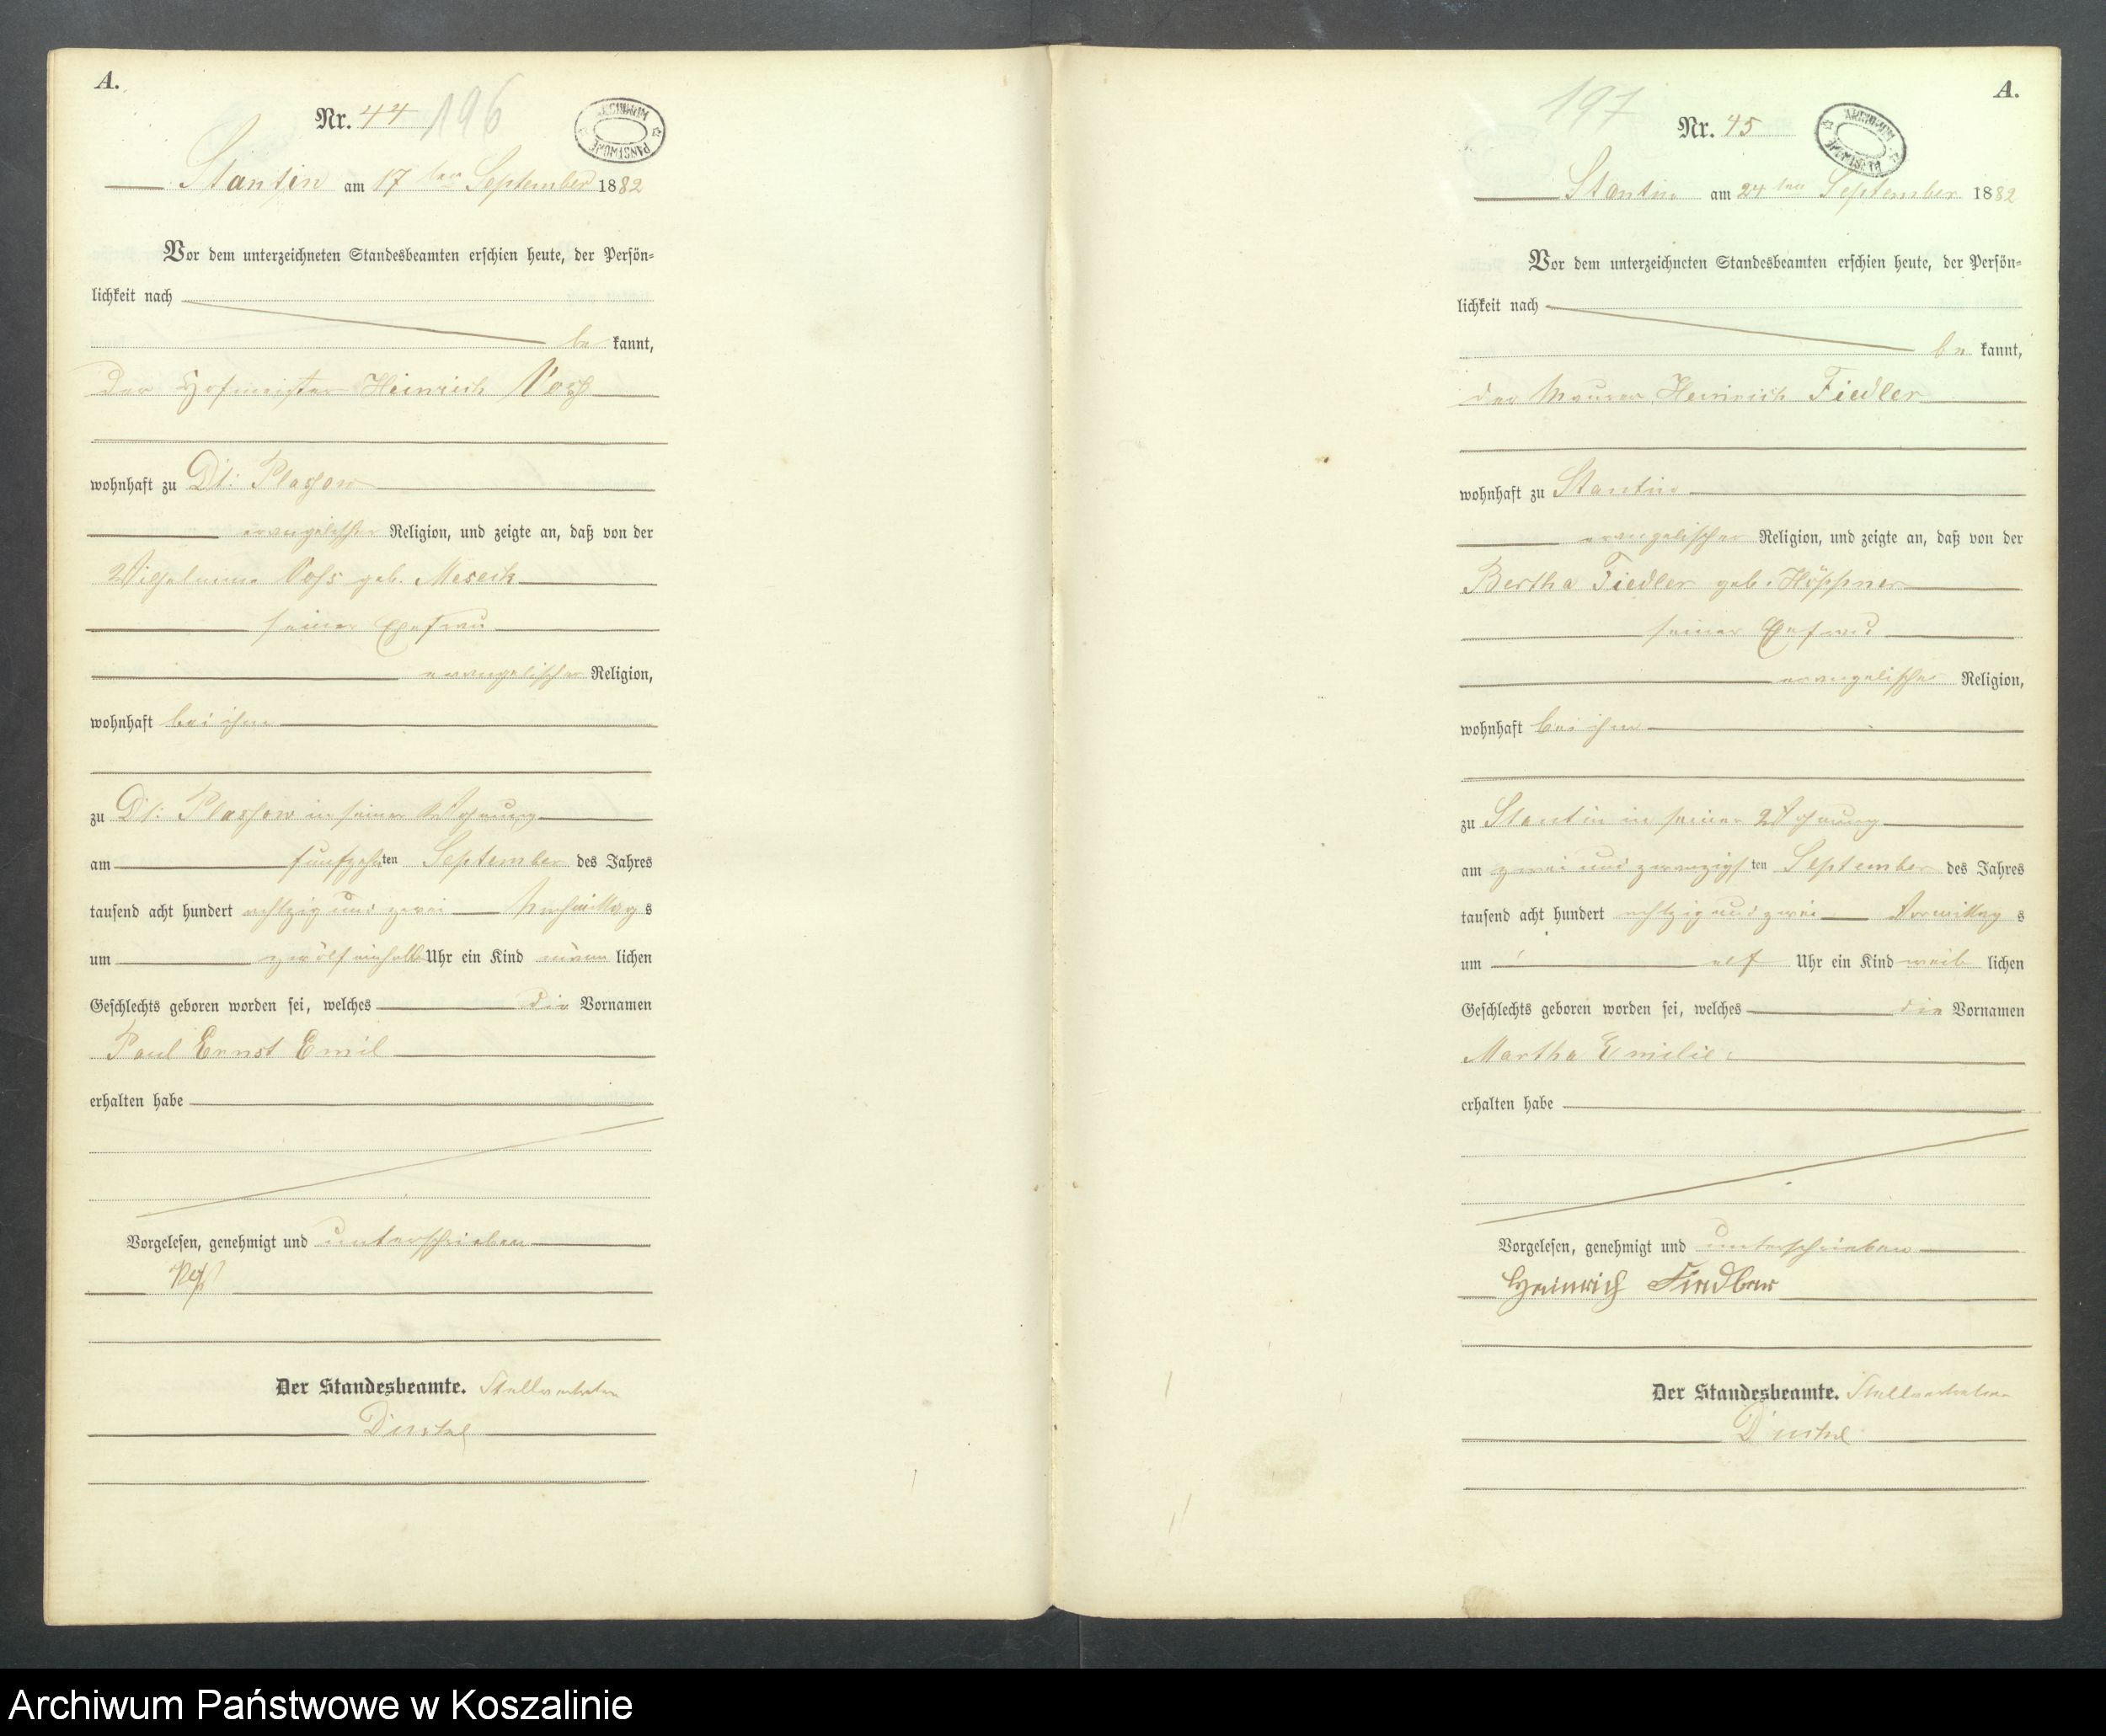 A.
Nr. 44 196
ARCHIWUM PAŃSTWOWE
Stantin am 17ten September 1882
Vor dem unterzeichneten Standesbeamten erschien heute, der Persön-
lichkeit nach
be kannt,
Der Hofmeister Heinrich Voß
wohnhaft zu Dt: Plassow
evangelischer Religion, und zeigte an, daß von der
Wilhelmine Vohs geb. Meseck
seiner Ehefrau
evangelischer Religion,
wohnhaft bei ihm
zu Dt: Plassow in seiner Wohnung
am fünfzehnten September des Jahres
tausend acht hundert achtzig und zwei Nachmittags
um zwölf einhalb Uhr ein Kind männ lichen
Geschlechts geboren worden sei, welches die Vornamen
Paul Ernst Emil
erhalten habe
Vorgelesen, genehmigt und unterschrieben
Der Standesbeamte. Stellvertreter
A.
197
Nr. 45
ARCHIWUM PAŃSTWOWE
Stantin am 24ten September 1882
Vor dem unterzeichneten Standesbeamten erschien heute, der Persön-
lichkeit nach
be kannt,
der Maurer Heinrich Fiedler
wohnhaft zu Stantin
evangelischer Religion, und zeigte an, daß von der
Bertha Fiedler geb. Höppner
seiner Ehefrau
evangelischer Religion,
wohnhaft bei ihm
zu Stantin in seiner Wohnung
am zwei und zwanzigsten September des Jahres
tausend acht hundert achtzig und zwei Vormittags
um elf Uhr ein Kind weib lichen
Geschlechts geboren worden sei, welches die Vornamen
Martha Emilie
erhalten habe
Vorgelesen, genehmigt und unterschrieben
Heinrich Fiedler
Der Standesbeamte. Stellvertreter
Archiwum Państwowe w Koszalinie